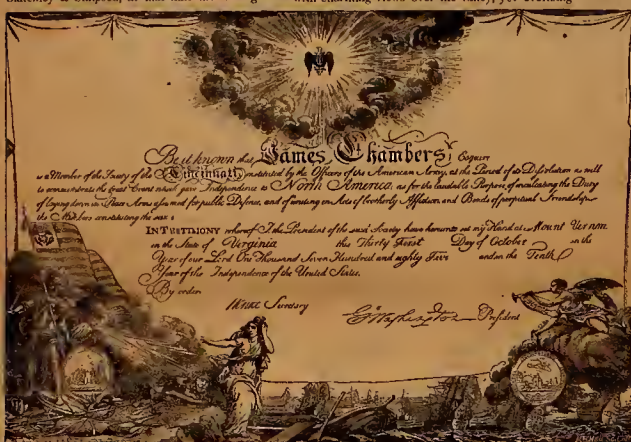 Be it known that James Chambers, Esquire
is a Member of the Society of the Cincinnati, instituted by the Officers of the American Army, at the Period of its Dissolution as well
to commemorate the great Event which gave Independence to North America, as for the laudable Purpose of inculcating the Duty
of laying down in Peace Arms assumed for public Defence, and of uniting in Acts of brotherly Affection and Bonds of perpetual Friendship
the Members constituting the same.
IN TESTIMONY whereof I, the President of the said Society have hereunto set my Hand at Mount Vernon
in the State of Virginia this Thirty First Day of October in the
Year of our Lord One Thousand Seven Hundred and eighty Five and in the Tenth
Year of the Independence of the United States.
By order
Secretary
President